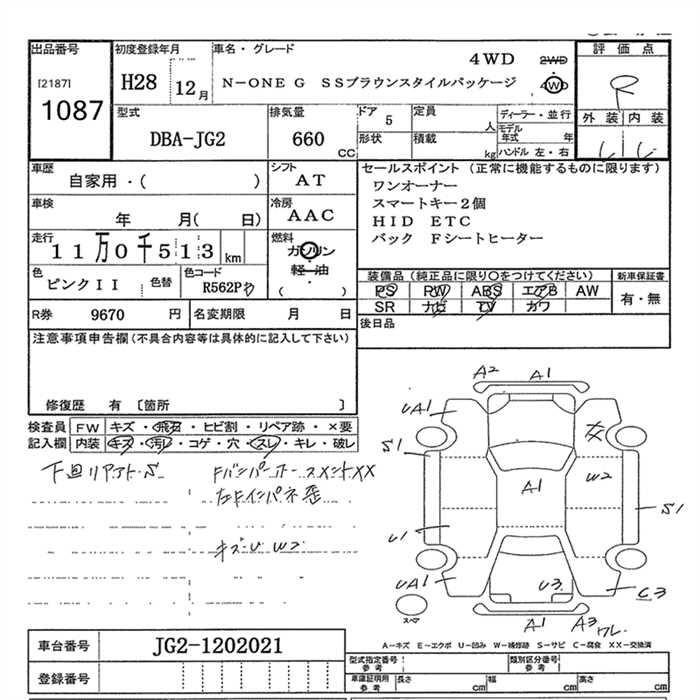 出品番号
初度登録年月
車名・グレード
4WD
2WD
4WD
評価点
[2187]
1087
H28
12月
N-ONE G SSブラウンスタイルパッケージ
R
型式
DBA-JG2
排気量
660
CC
ドア
5
定員
人
形状
積載
kg
ディーラー・並行
モデル年式
年
ハンドル 左・右
外装 内装
車歴
自家用・( )
シフト
AT
セールスポイント(正常に機能するものに限ります)
ワンオーナー
スマートキー2個
HID ETC
バック Fシートヒーター
車検
年 月( 日)
冷房
AAC
走行
11万0千513
km
燃料
ガソリン
軽・油
( )
色
ピンクII
色替
色コード
R562P
装備品(純正品に限り○をつけてください)
新車保証書
PS PW ABS エアB AW
SR ナビ TV カワ
有・無
R券
9670
円
名変期限
月 日
後日品
注意事項申告欄(不具合内容等は具体的に記入して下さい)
修復歴 有 〔箇所 〕
検査員記入欄
FW
キズ・飛石・ヒビ割・リペア跡・×要
内装
キズ・汚レ・コゲ・穴・スレ・キレ・破レ
下廻リアアトS
XX
キズU W2
A2
A1
UA1
S1
W2
A1
S1
U1
UA1
U3
C3
スペア
A1
A3
ワレ
A-キズ E-エクボ U-凹み W-補修跡 S-サビ C-腐食 XX-交換済
車台番号
JG2-1202021
登録番号
型式指定番号
参考
類別区分番号
参考
車庫証明用
参考
長さ
cm
幅
cm
高さ
cm